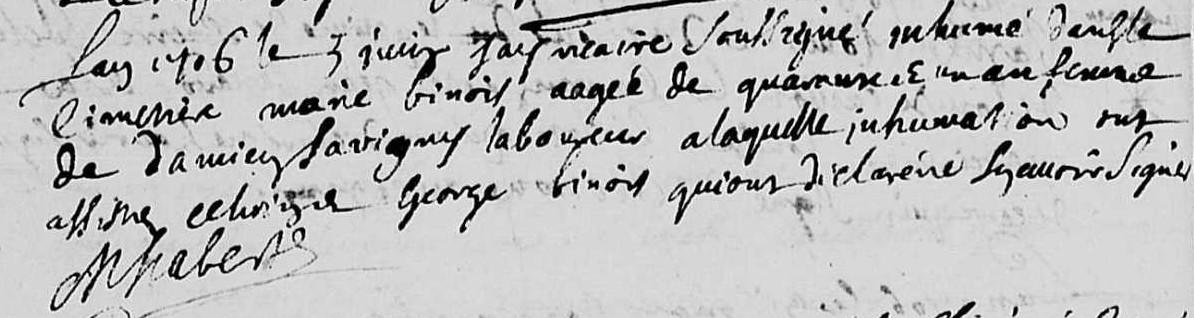 Lan 1706 le 3 juin Jay vicaire soussigné inhumé dans le
Cimetière marie binois aagée de quarante et un an femme
de damien Savigny laboureur a laquelle inhumation ont
assisté George binois qui ont declaré ne scavoir signer
Habert